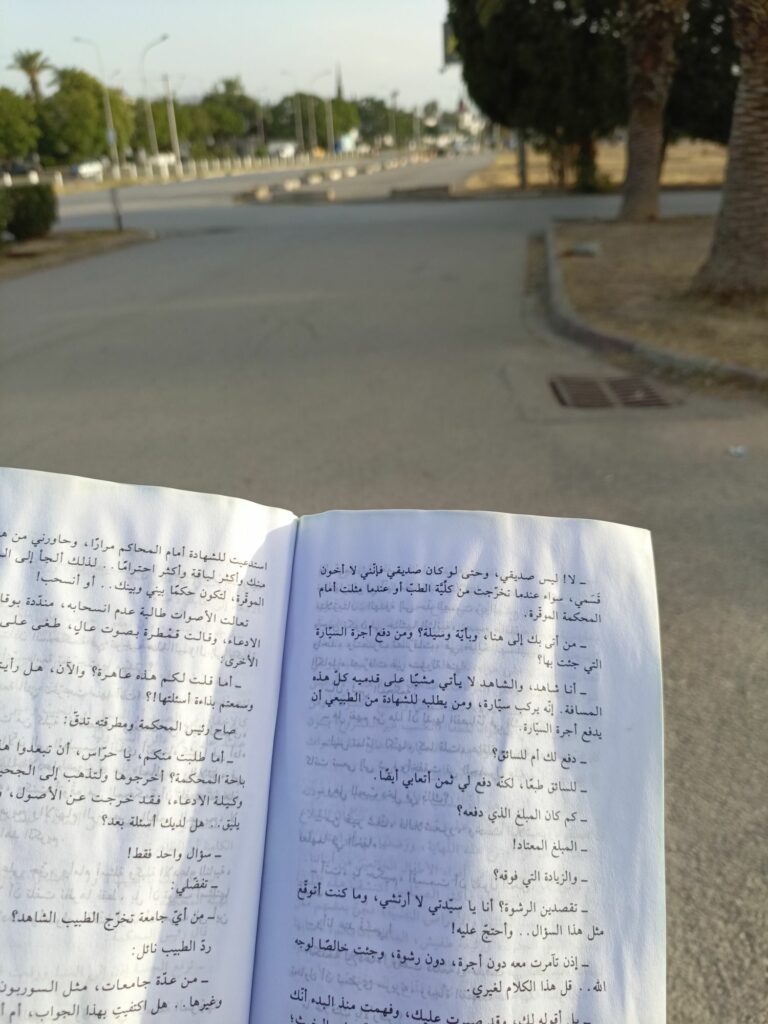 ـ لا! ليس صديقي، وحتى لو كان صديقي فإنّني لا أخون
قَسَمي، سواء عندما تخرّجت من كلّيّة الطبّ أو عندما مثلت أمام
المحكمة الموقّرة.
ـ من أتى بك إلى هنا، وبأيّة وسيلة؟ ومن دفع أجرة السيّارة
التي جئت بها؟
ـ أنا شاهد، والشاهد لا يأتي مشيًا على قدميه كلّ هذه
المسافة. إنّه يركب سيّارة، ومن يطلبه للشهادة من الطبيعي أن
يدفع أجرة السيّارة.
ـ دفع لك أم للسائق؟
ـ للسائق طبعًا، لكنّه دفع لي ثمن أتعابي أيضًا.
ـ كم كان المبلغ الذي دفعه؟
ـ المبلغ المعتاد!
ـ والزيادة التي فوقه؟
ـ تقصدين الرشوة؟ أنا يا سيّدتي لا أرتشي، وما كنت أتوقّع
مثل هذا السؤال.. وأحتجّ عليه!
ـ إذن تآمرت معه دون أجرة، دون رشوة، وجئت خالصًا لوجه
الله.. قل هذا الكلام لغيري.
ـ بل أقوله لك، وقد صبرت عليك، وفهمت منذ البدء أنّك
استدعيت للشهادة أمام المحاكم مرارًا، وحاورني من
منك وأكثر لباقة وأكثر احترامًا.. لذلك ألجأ إلى
الموقّرة، لتكون حكمًا بيني وبينك.. أو أنسحب!
تعالت الأصوات طالبة عدم انسحابه، مندّدة
الادعاء، وقالت قشطرة بصوت عالٍ، طغى على
الأخرى:
ـ أما قلت لكم هذه عاهرة؟ والآن، هل
وسمعتم بذاءة أسئلتها!؟
صاح رئيس المحكمة ومطرقته تدقّ:
ـ أما طلبت منكم، يا حرّاس، أن تبعدوا
باحة المحكمة؟ أخرجوها ولتذهب إلى
وكيلة الادعاء، فقد خرجت عن الأصول،
يليق.. هل لديك أسئلة بعد؟
ـ سؤال واحد فقط!
ـ تفضّلي:
ـ مِن أيّ جامعة تخرّج الطبيب الشاهد؟
ردّ الطبيب نائل:
ـ من عدّة جامعات، مثل السوربون
وغيرها.. هل اكتفيتِ بهذا الجواب، أم